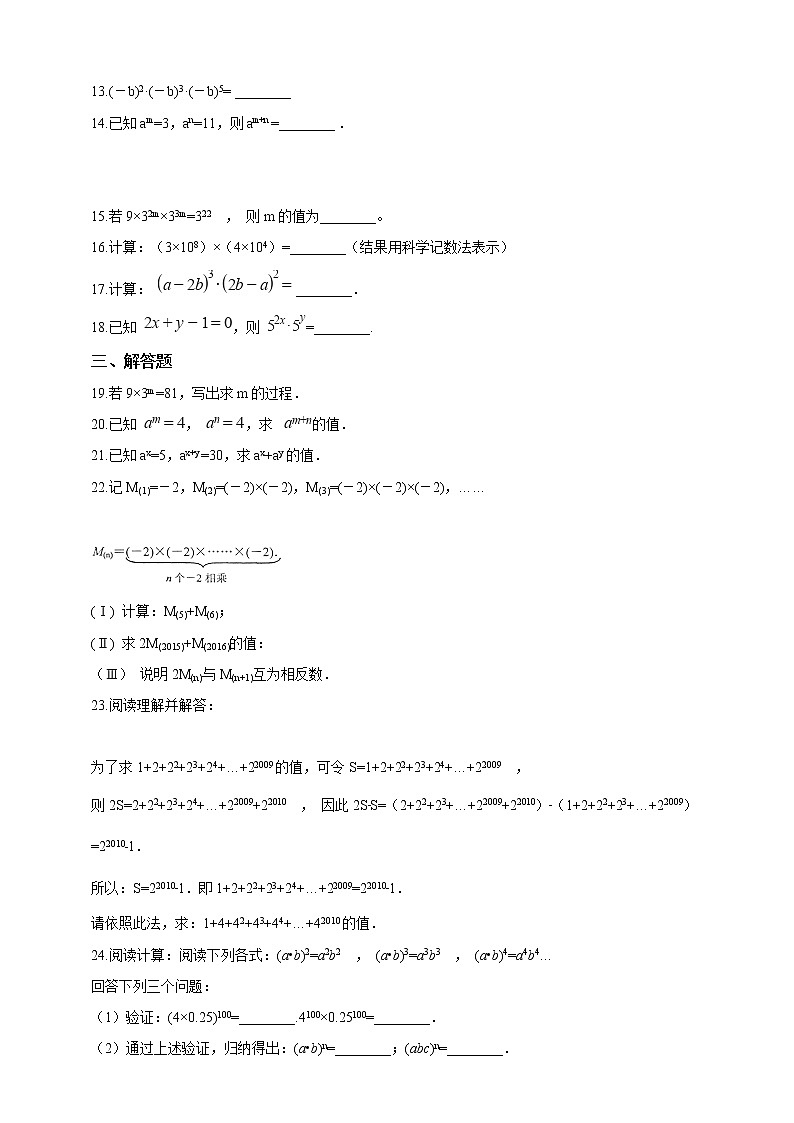 13.(－b)²·(－b)³·(－b)⁵= ________
14.已知 aᵐ=3,aⁿ=11,则 aᵐ⁺ⁿ=________ .
15.若 9×3²ᵐ×3³ᵐ=3²² ， 则 m 的值为________。
16.计算：（3×10⁸）×（4×10⁴）=________（结果用科学记数法表示）
17.计算： (a−2b)³·(2b−a)²= ________.
18.已知 2x+y−1=0,则 5²ˣ·5ʸ=________.
三、解答题
19.若 9×3ᵐ=81,写出求 m 的过程.
20.已知 aᵐ=4, aⁿ=4,求 aᵐ⁺ⁿ的值.
21.已知 aˣ=5,aˣ⁺ʸ=30,求 aˣ+aʸ 的值.
22.记 M₍₁₎=－2,M₍₂₎=(－2)×(－2),M₍₃₎=(－2)×(－2)×(－2),……
M₍ₙ₎=(－2)×(－2)×……×(－2).
n 个－2 相乘
(Ⅰ) 计算：M₍₅₎+M₍₆₎;
(Ⅱ) 求 2M₍₂₀₁₅₎+M₍₂₀₁₆₎的值：
（Ⅲ） 说明 2M₍ₙ₎与 M₍ₙ₊₁₎互为相反数.
23.阅读理解并解答：
为了求 1+2+2²+2³+2⁴+…+2²⁰⁰⁹的值,可令 S=1+2+2²+2³+2⁴+…+2²⁰⁰⁹ ，
则 2S=2+2²+2³+2⁴+…+2²⁰⁰⁹+2²⁰¹⁰ ， 因此 2S-S=（2+2²+2³+…+2²⁰⁰⁹+2²⁰¹⁰）-（1+2+2²+2³+…+2²⁰⁰⁹）
=2²⁰¹⁰-1.
所以：S=2²⁰¹⁰-1.即 1+2+2²+2³+2⁴+…+2²⁰⁰⁹=2²⁰¹⁰-1.
请依照此法,求：1+4+4²+4³+4⁴+…+4²⁰¹⁰的值.
24.阅读计算：阅读下列各式：(a•b)²=a²b² ， (a•b)³=a³b³ ， (a•b)⁴=a⁴b⁴…
回答下列三个问题：
（1）验证：(4×0.25)¹⁰⁰=________.4¹⁰⁰×0.25¹⁰⁰=________.
（2）通过上述验证，归纳得出：(a•b)ⁿ=________；(abc)ⁿ=________.